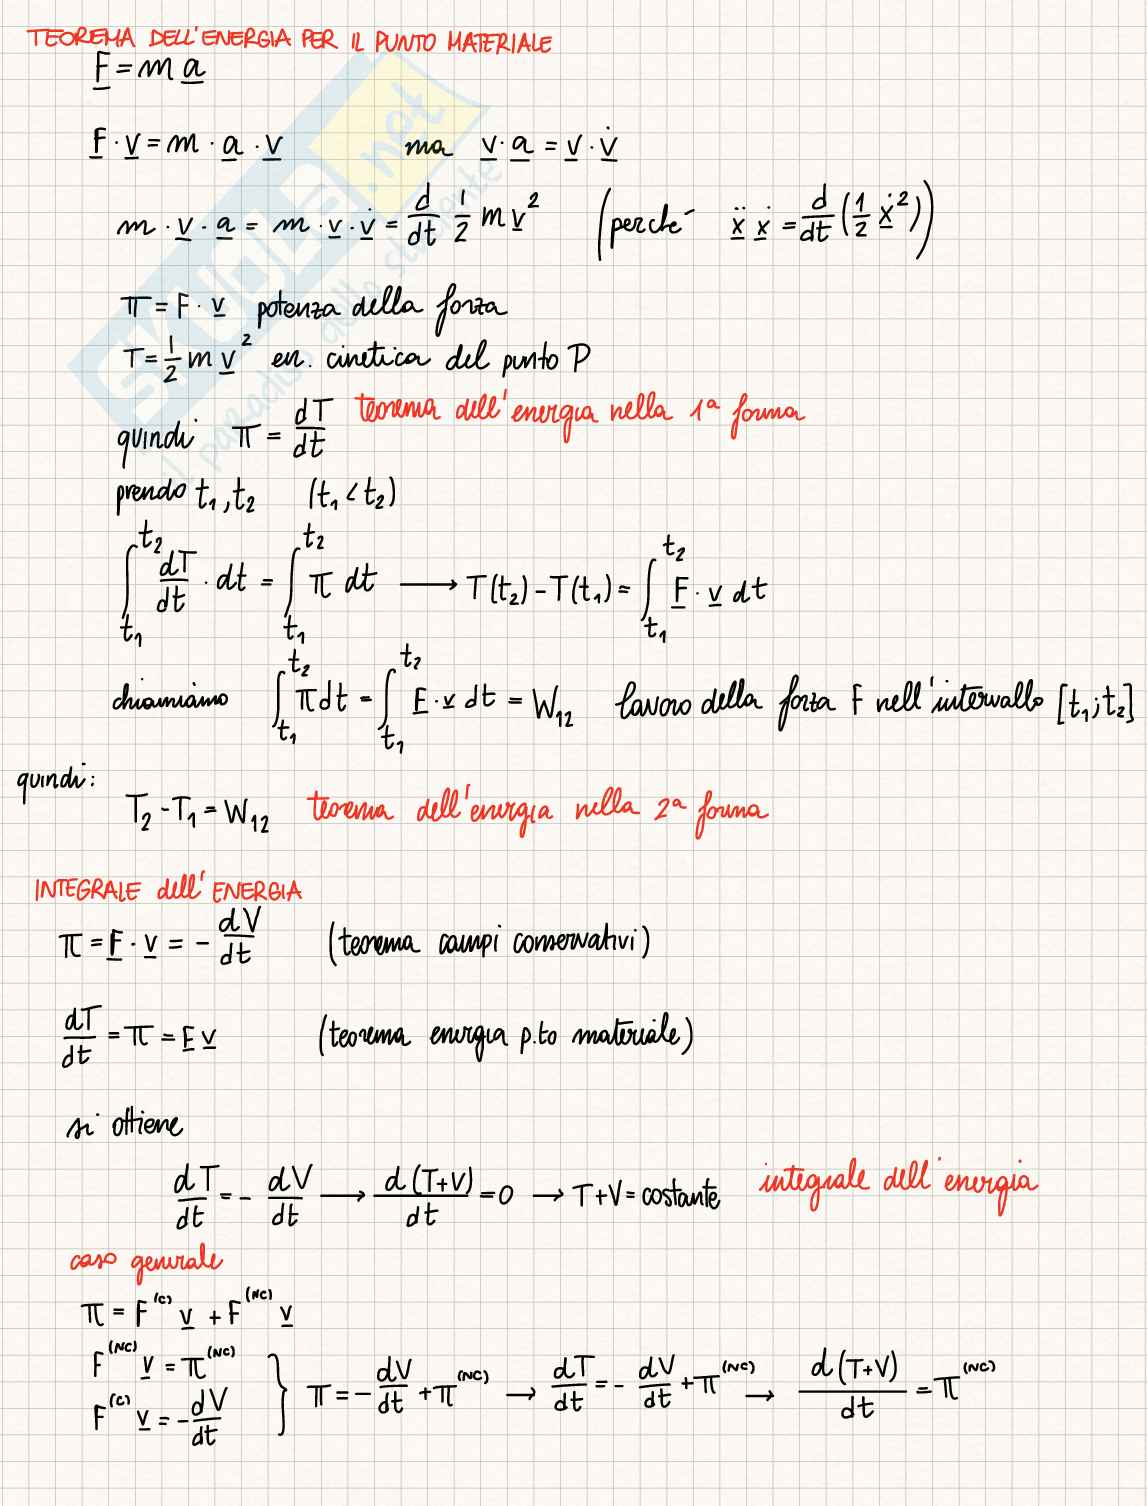 TEOREMA DELL'ENERGIA PER IL PUNTO MATERIALE
F = m a
F · v = m · a · v ma v · a = v · v̇
m · v · a = m · v · v̇ = d/dt 1/2 m v² (perché ẍ ẋ = d/dt (1/2 ẋ²))
π = F · v potenza della forza
T = 1/2 m v² en. cinetica del punto P
quindi π = dT/dt teorema dell'energia nella 1ª forma
prendo t₁, t₂ (t₁ < t₂)
∫_{t₁}^{t₂} dT/dt · dt = ∫_{t₁}^{t₂} π dt → T(t₂) - T(t₁) = ∫_{t₁}^{t₂} F · v dt
chiamiamo ∫_{t₁}^{t₂} π dt = ∫_{t₁}^{t₂} F · v dt = W₁₂ lavoro della forza F nell'intervallo [t₁; t₂]
quindi:
T₂ - T₁ = W₁₂ teorema dell'energia nella 2ª forma
INTEGRALE dell'ENERGIA
π = F · v = - dV/dt (teorema campi conservativi)
dT/dt = π = F v (teorema energia p.to materiale)
si ottiene
dT/dt = - dV/dt → d(T+V)/dt = 0 → T+V = costante integrale dell'energia
caso generale
π = F^(C) v + F^(NC) v
F^(NC) v = π^(NC)
F^(C) v = - dV/dt } π = - dV/dt + π^(NC) → dT/dt = - dV/dt + π^(NC) → d(T+V)/dt = π^(NC)
SKUOLA.net
il paradiso dello studente